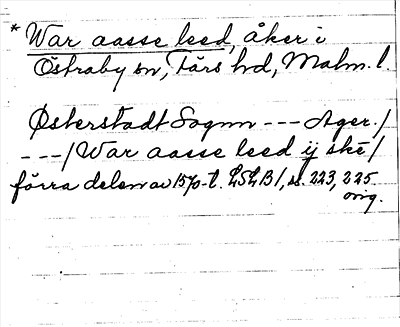 * War aasse leed, åker i
Östraby sn, Färs hd, Malm. l.
Østerstadt Sognn --- Ager./
---/ War aasse leed ij ske/
förra delen av 1570-t. LSLB 1, s. 223, 225
orig.